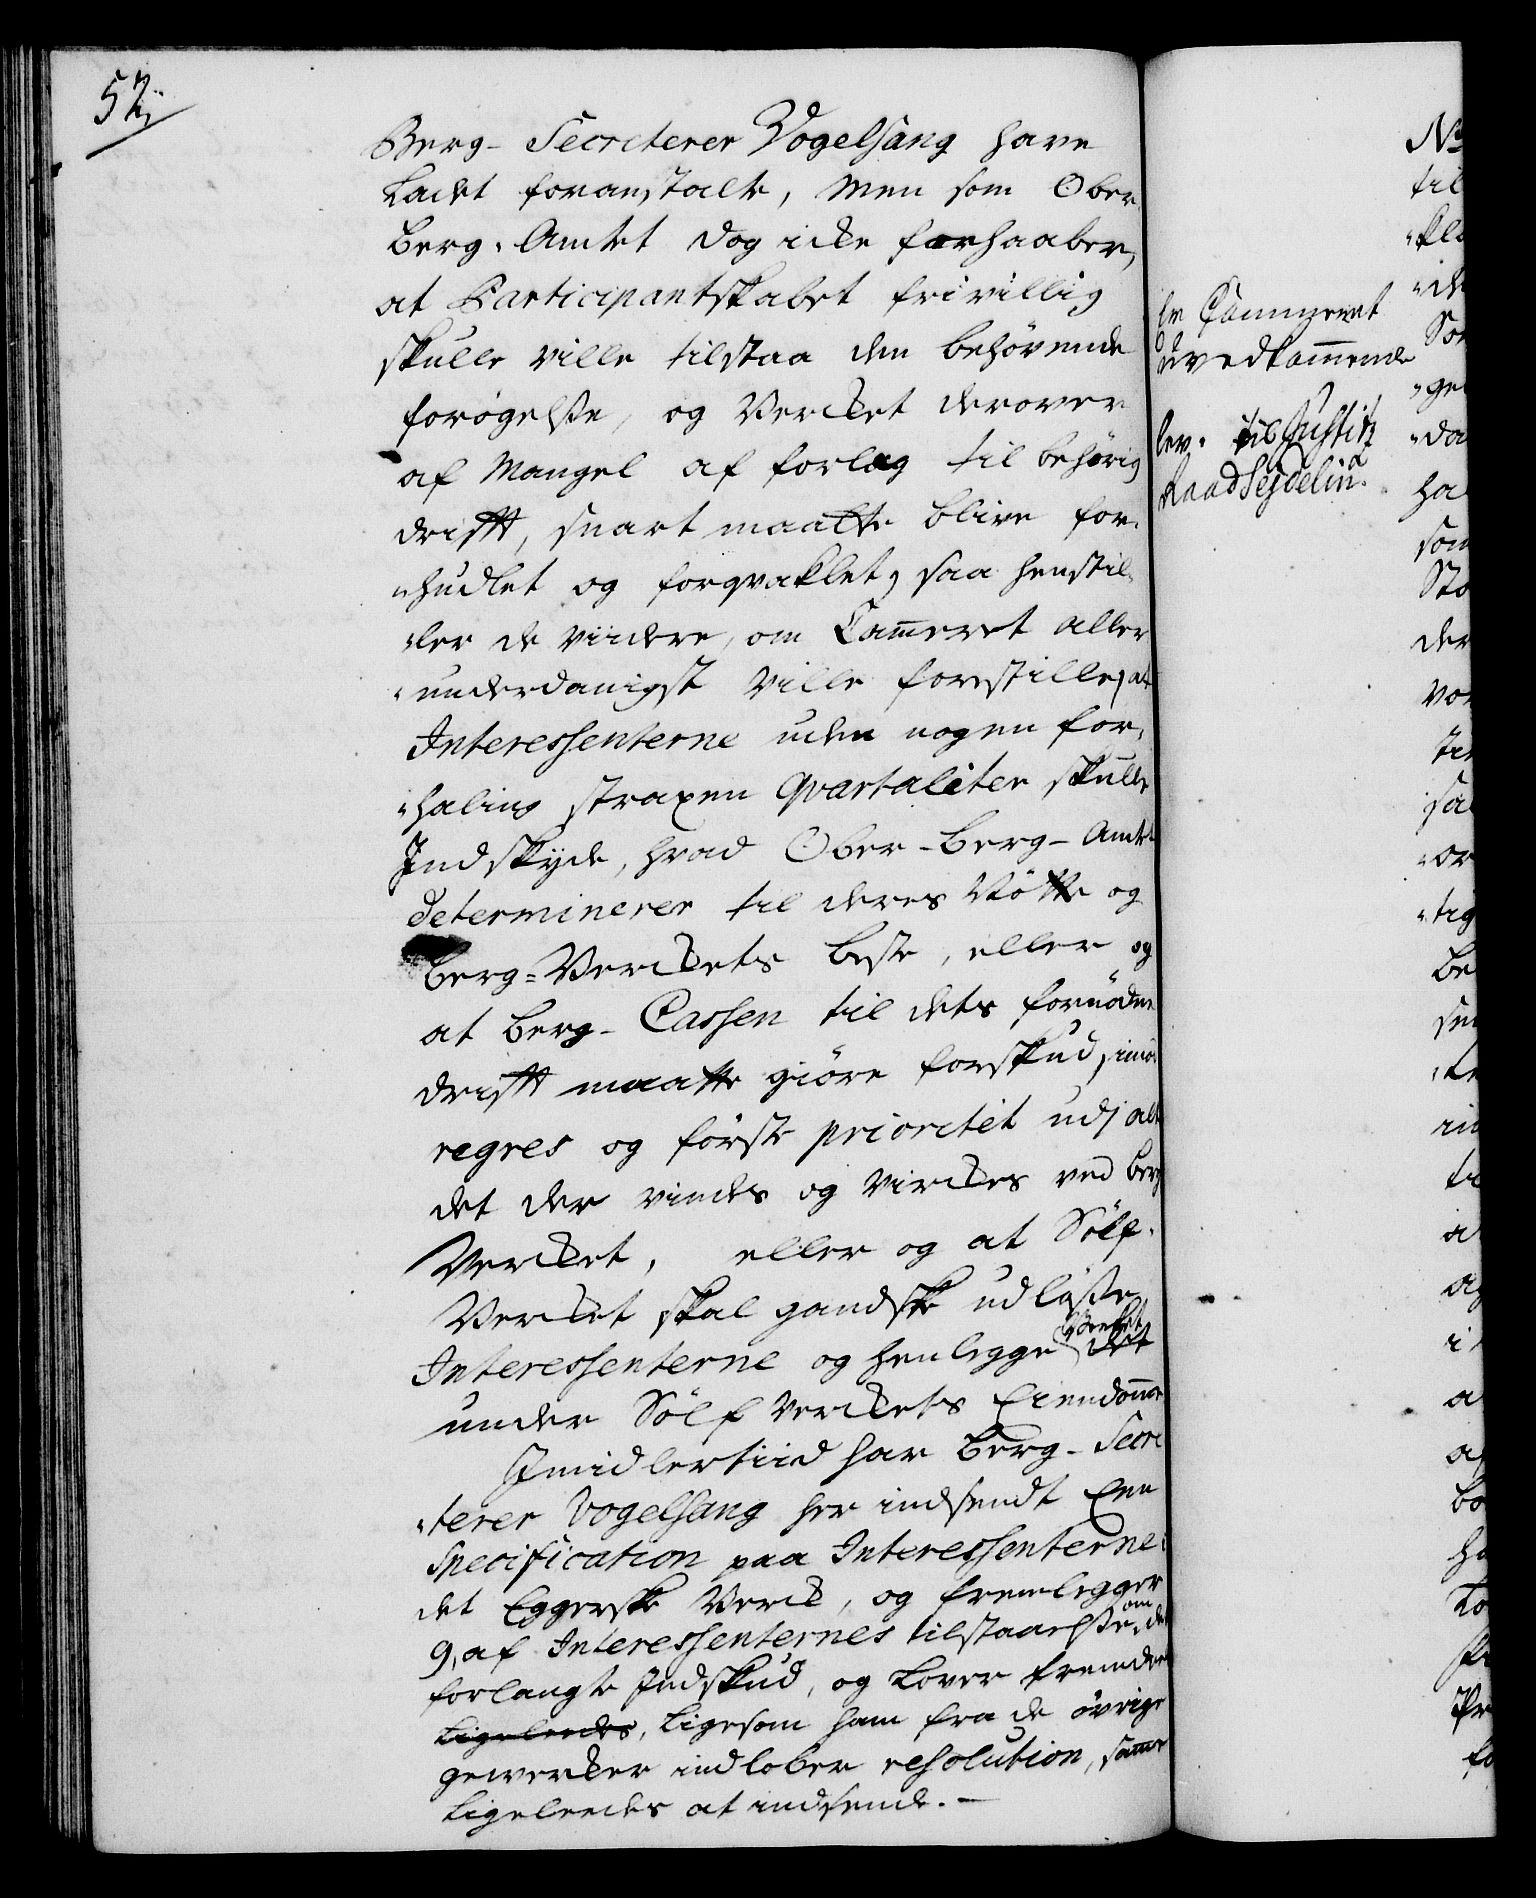 52,
Berg- Secreterer Vogelsang have
Ladet foranstalte, Men som Ober
Berg-Amtet dog icke forhaaber,
at Participantskabet frivillig
skulle ville tilstaa den behövende
forögelse, og Vercket derover
af Mangel af forlag til behörig
drifft, snart maatte blive for-
"hudlet og forqvaklet, saa henstil-
"ler de viidere, om Cammeret aller
"underdanigst ville forestille, at
Interessenterne uden nogen for-
"haling straxen qvartaliter skulle
Indskyde, hvad Ober-Berg-Amtet
determinerer til deres Nötte og
Berg-Verckets beste, eller og
at Berg-Cassen til dets fornödne
drifft maatte giöre forskud, imod
regres og förste prioritet udj alt
det der vindes og virckes ved Berg
Vercket, eller og at Sölf-
Vercket skal gandske udlösse
Interessenterne og henlegge Verket det
under Sölf Verckets Eiendomme
Imidlertiid har Berg-Secre
"terer Vogelsang her indsendt Een
Specification paa Interessenterne i
det Eggerske Verck, og fremlegger
9, af Interessenternes tilstaaelse, om det
forlangte Indskud, og Lover fremdeles
Ligeleedes, Ligesom ham fra de övrige
gewercker indlober resolution, samme
Ligeleedes at indsende. -
Cammeret
uvedkommende
lev. til Justitz
Raad Sejdelin.
No
til